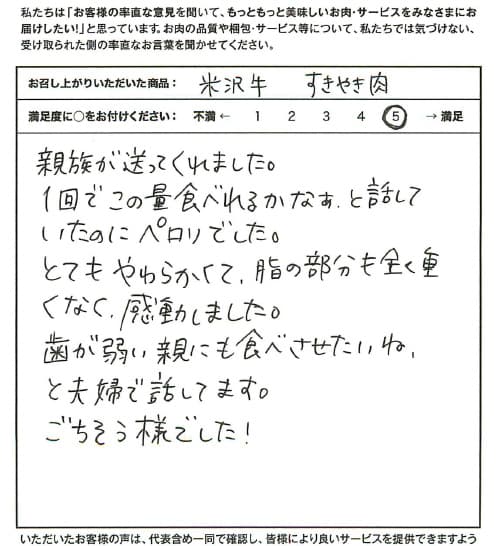 私たちは「お客様の率直な意見を聞いて、もっともっと美味しいお肉・サービスをみなさまにお
届けしたい！」と思っています。お肉の品質や梱包・サービス等について、私たちでは気づけない、
受け取られた側の率直なお言葉を聞かせてください。
お召し上がりいただいた商品： 米沢牛 すきやき肉
満足度に○をお付けください： 不満 ← 1 2 3 4 5 → 満足
親族が送ってくれました。
1回でこの量食べれるかなぁ、と話して
いたのにペロリでした。
とてもやわらかくて、脂の部分も全く重
くなく、感動しました。
歯が弱い親にも食べさせたいね、
と夫婦で話してます。
ごちそう様でした！
いただいたお客様の声は、代表含め一同で確認し、皆様により良いサービスを提供できますよう